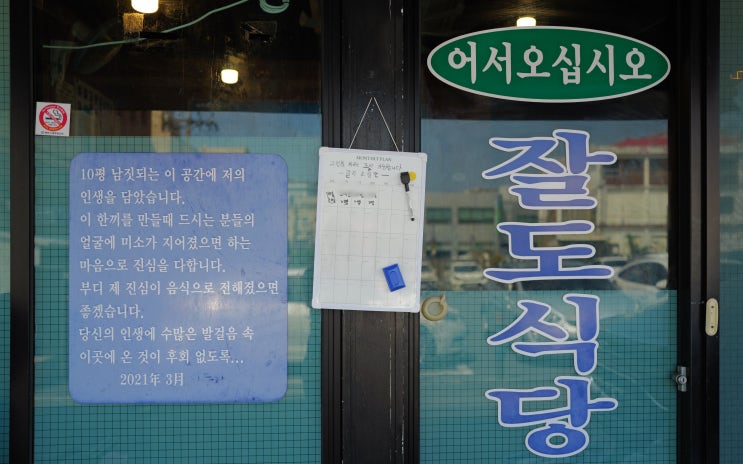 10평 남짓되는 이 공간에 저의
인생을 담았습니다.
이 한끼를 만들때 드시는 분들의
얼굴에 미소가 지어졌으면 하는
마음으로 진심을 다합니다.
부디 제 진심이 음식으로 전해졌으면
좋겠습니다.
당신의 인생에 수많은 발걸음 속
이곳에 온 것이 후회 없도록...
2021年 3月
MONTHLY PLAN
어서오십시오
잘도식당